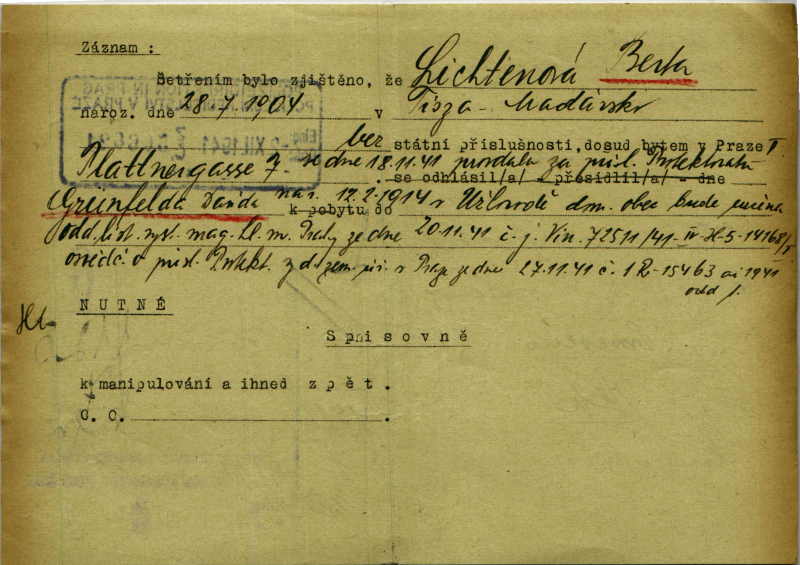 Záznam :
Šetřením bylo zjištěno, že Lichtenová Berta
naroz. dne 28.7.1904 v Tisza-Maďarsko
bez státní příslušnosti, dosud bytem v Praze I
Plattnergasse 7. se dne 18.11.41 provdala za přísl. Protektorátu
se odhlásil/a/ - přesídlil/a/ - dne
Grünfelda Davida nar. 12.2.1914 v Užhorodě dom. obec bude
k pobytu do
odd. mag. hl. m. Prahy ze dne 20.11.41 č.j. Vin. 72511/41-IV-H-5-14168/
o přísl. Protekt. z d. zem. úř. v Praze ze dne 27.11.41 č. 1R-15463 ai 1941
odd
NUTNÉ
Spisovně
k manipulování a ihned zpět.
C. C.
XII. 1941